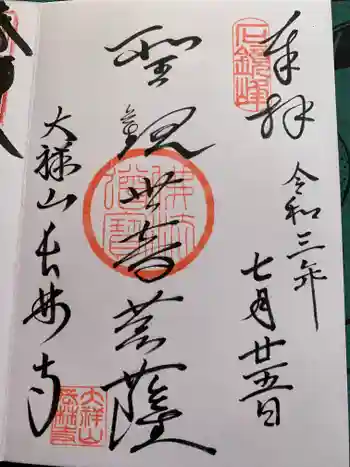 奉拝
令和三年
七月廿五日
聖観世音菩薩
佛法僧寶
大祥山長林寺
大祥山